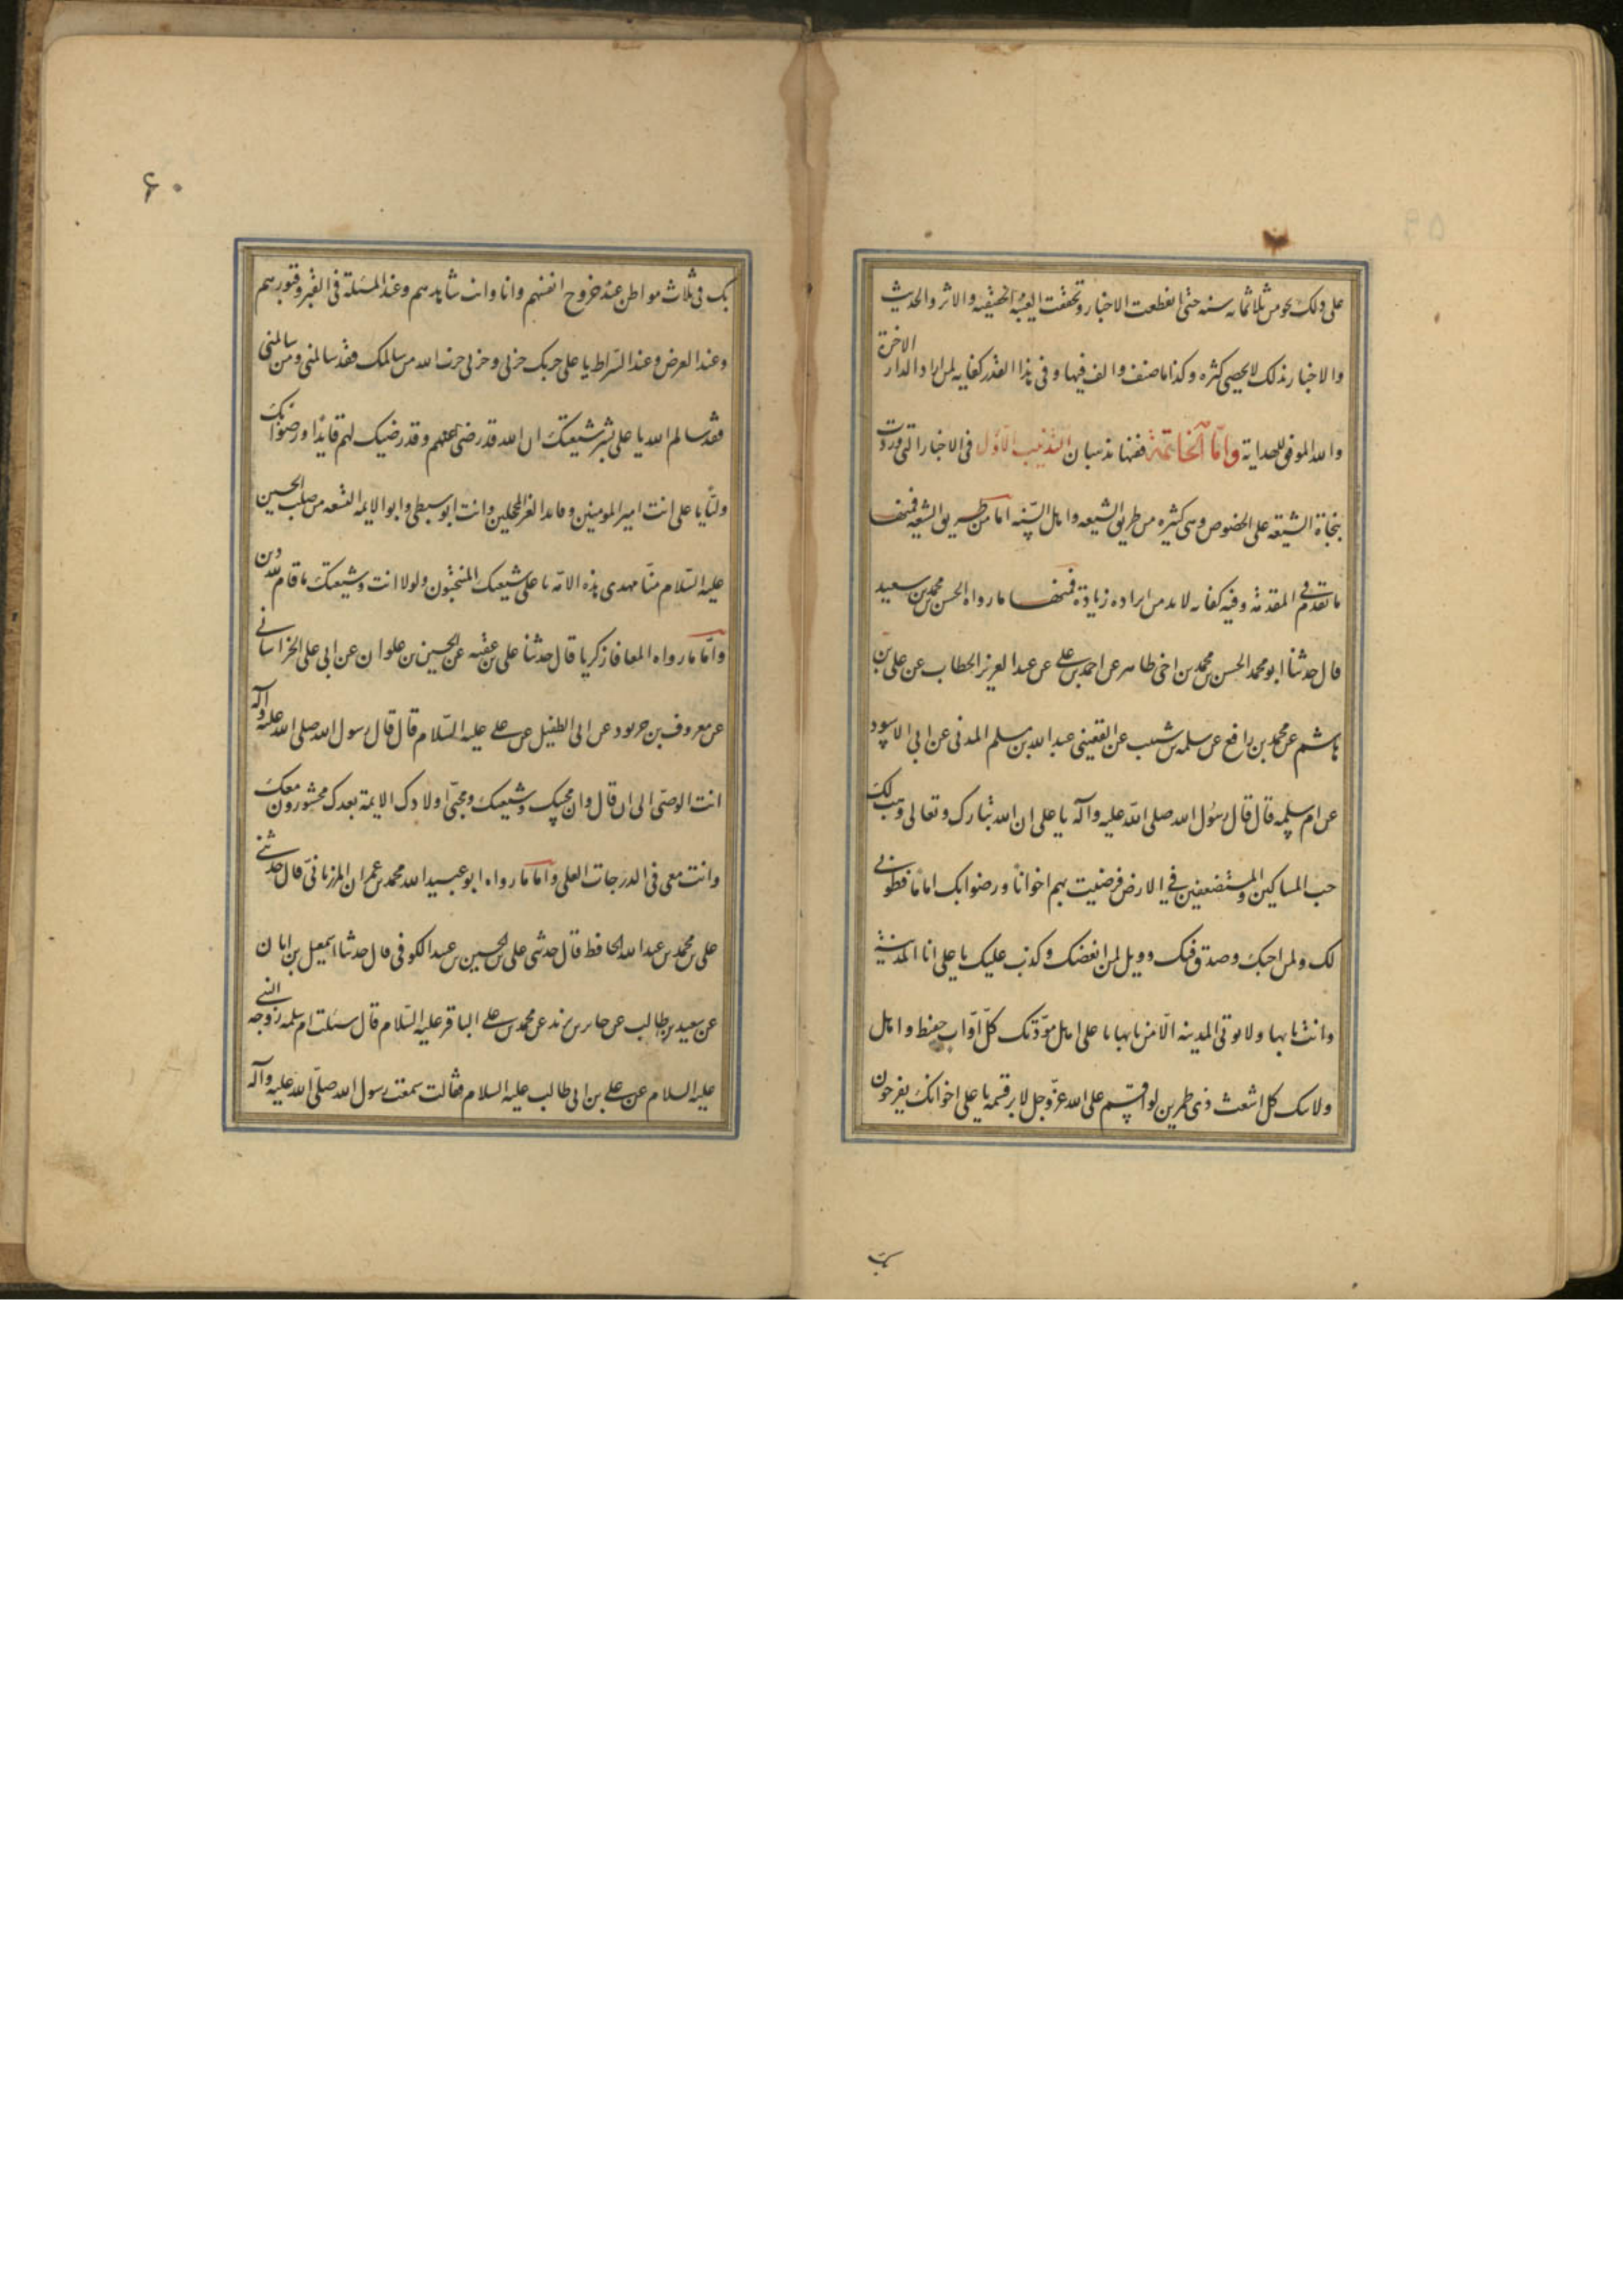 على ذلك نحو من ثلاثمائه سنه حتى انقطعت الاخبار وتحققت الغيبة الحقيقيه والاثر والحديث
والاخبار بذلك لا يحصى كثره وكذا ما صنف والف فيها وفى هذا القدر كفايه لمن اراد الدار الاخرة
والله الموفق للهداية وامّا الخاتمة ففيها تذنيبان التذنيب الاوّل فى الاخبار التى وردت
بنجاة الشيعة على الخصوص وهى كثيره من طريق الشيعه واهل السّنه اما من طريق الشيعه فمنها
ما تقدم فى المقدمة وفيه كفايه لابد من ايراده زيادة فمنها ما رواه الحسن بن محمد بن سعيد
قال حدثنا ابو محمد الحسن بن محمد بن اخى طاهر عن احمد بن على عن عبد العزيز الخطاب عن على بن
هاشم عن محمد بن رافع عن سلمه بن شبيب عن القعينى عبد الله بن مسلم المدنى عن ابى الاسود
عن ام سلمه قال قال رسول الله صلى الله عليه وآله يا على ان الله تبارك وتعالى وهب لك
حب المساكين والمستضعفين فى الارض فرضيت بهم اخوانا ورضوا بك اماما فطوبى
لك ولمن احبك وصدق فيك وويل لمن ابغضك وكذب عليك يا على انا المدينة
وانت بابها ولا يوتى المدينه الّا من بابها يا على اهل مودّتك كلّ اوّاب حفيظ واهل
ولايتك كل اشعث ذى طمرين لو اقسم على الله عزّ وجل لابر قسمه يا على اخوانك يفرحون
بك
٦٠
بك فى ثلاث مواطن عند خروج انفسهم وانا وانت شاهدهم وعند المسئلة فى القبر وقبورهم
وعند العرض وعند السّراط يا على حربك حربى وحربى حرب الله من سالمك فقد سالمنى ومن سالمنى
فقد سالم الله يا على بشر شيعتك ان الله قد رضى عنهم وقد رضيك لهم قايدا ورضوا بك
وليّا يا على انت امير المومنين وقايد الغر المحجلين وانت ابو سبطى وابو الايمه التسعه من صلب الحسين
عليه السّلام منّا مهدى هذه الامّه يا على شيعتك المنتجبون ولولا انت وشيعتك ما قام لله دين
وامّا ما رواه المعافا زكريا قال حدثنا على بن عقبه عن الحسين بن علوان عن ابى على الخراسانى
عن معروف بن خربود عن ابى الطفيل عن على عليه السّلام قال قال رسول الله صلى الله عليه وآله
انت الوصىّ الى ان قال وان محبيك وشيعتك ومحبّى اولادك الايمة بعدك محشورون معك
وانت معى فى الدرجات العلى واما ما رواه ابو عبيد الله محمد بن عمران المرزبانىّ قال حدثنى
على بن محمد بن عبد الله الحافظ قال حدثنى على بن الحسين بن عبد الكوفى قال حدثنا اسمعيل بن ابان
عن سعيد بن طالب عن جابر بن يزيد عن محمد بن على الباقر عليه السّلام قال سئلت ام سلمه زوجه النبى
عليه السلام عن على بن ابى طالب عليه السلام فقالت سمعت رسول الله صلّى الله عليه وآله